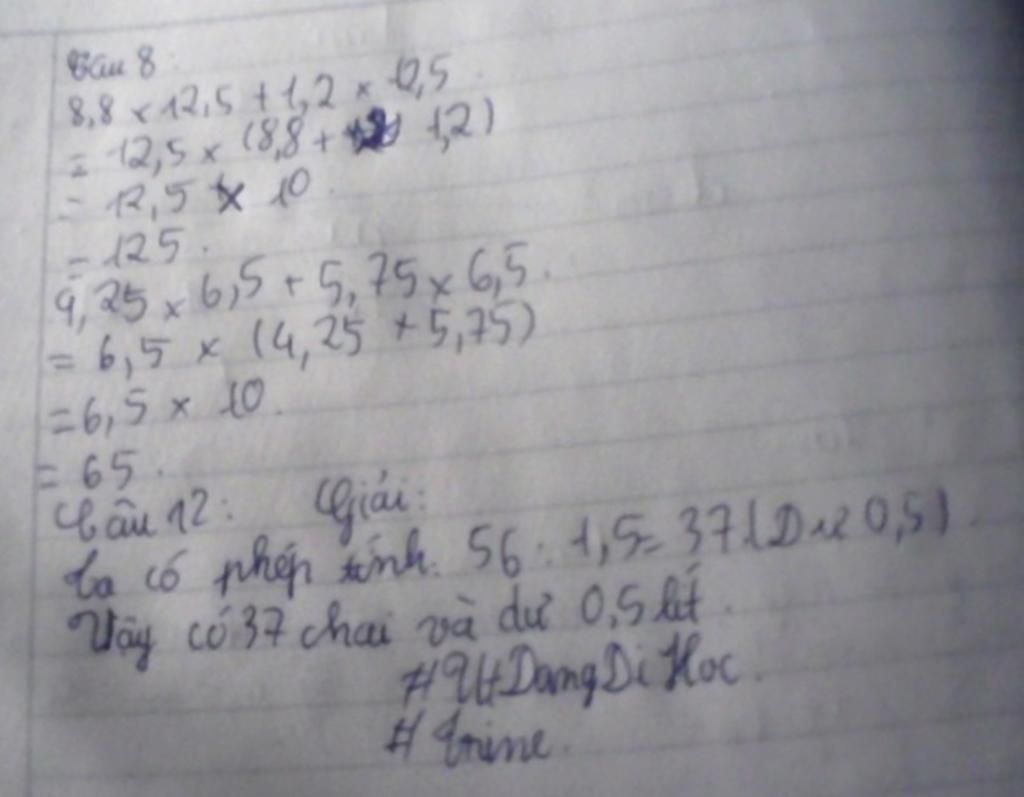 Câu 8:
8,8 x 12,5 + 1,2 x 12,5.
= 12,5 x (8,8 + 1,2)
= 12,5 x 10.
= 125.
4,25 x 6,5 + 5,75 x 6,5.
= 6,5 x (4,25 + 5,75)
= 6,5 x 10.
= 65.
Câu 12: Giải:
Ta có phép tính: 56 : 1,5 = 37 (Dư 0,5).
Vậy có 37 chai và dư 0,5 lít.
DangDiHoc.